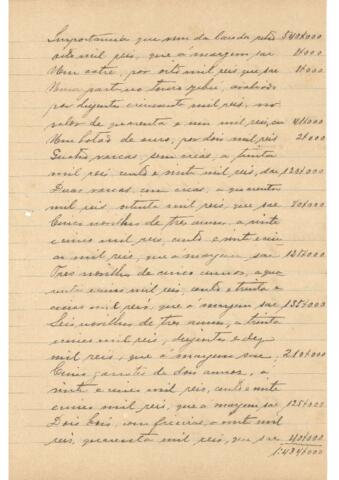 Importancia que vem da lauda retro 540$000
oito mil reis, que á margem sae 8$000
Um catre, por oito mil reis, que sae 8$000
Uma parte no touro zebu, avaliado
por duzentos cincoenta mil reis, no
valor de quarenta e um mil reis, sae 41$000
Um botão de ouro, por dois mil reis 2$000
Quatro vaccas sem crias, a trinta
mil reis, cento e vinte mil reis, sae 120$000
Duas vaccas com crias, a quarenta
mil reis oitenta mil reis, que sae 80$000
Cinco novilhos de tres annos, a vinte
e cinco mil reis, cento e vinte e cin
co mil reis, que á margem sae 125$000
Tres novilhos de cinco annos, a qua
renta e cinco mil reis, cento e trinta e
cinco mil reis, que á margem sae 135$000
Seis novilhos de tres annos, a trinta
cinco mil reis, duzentos e dez
mil reis, que á margem sae 210$000
Cinco garrotes de dois annos, a
vinte e cinco mil reis, cento e vinte
cinco mil reis, que á margem sae 125$000
Dois bois, com a vinte mil
reis, quarenta mil reis, que sae 40$000
1:434$000